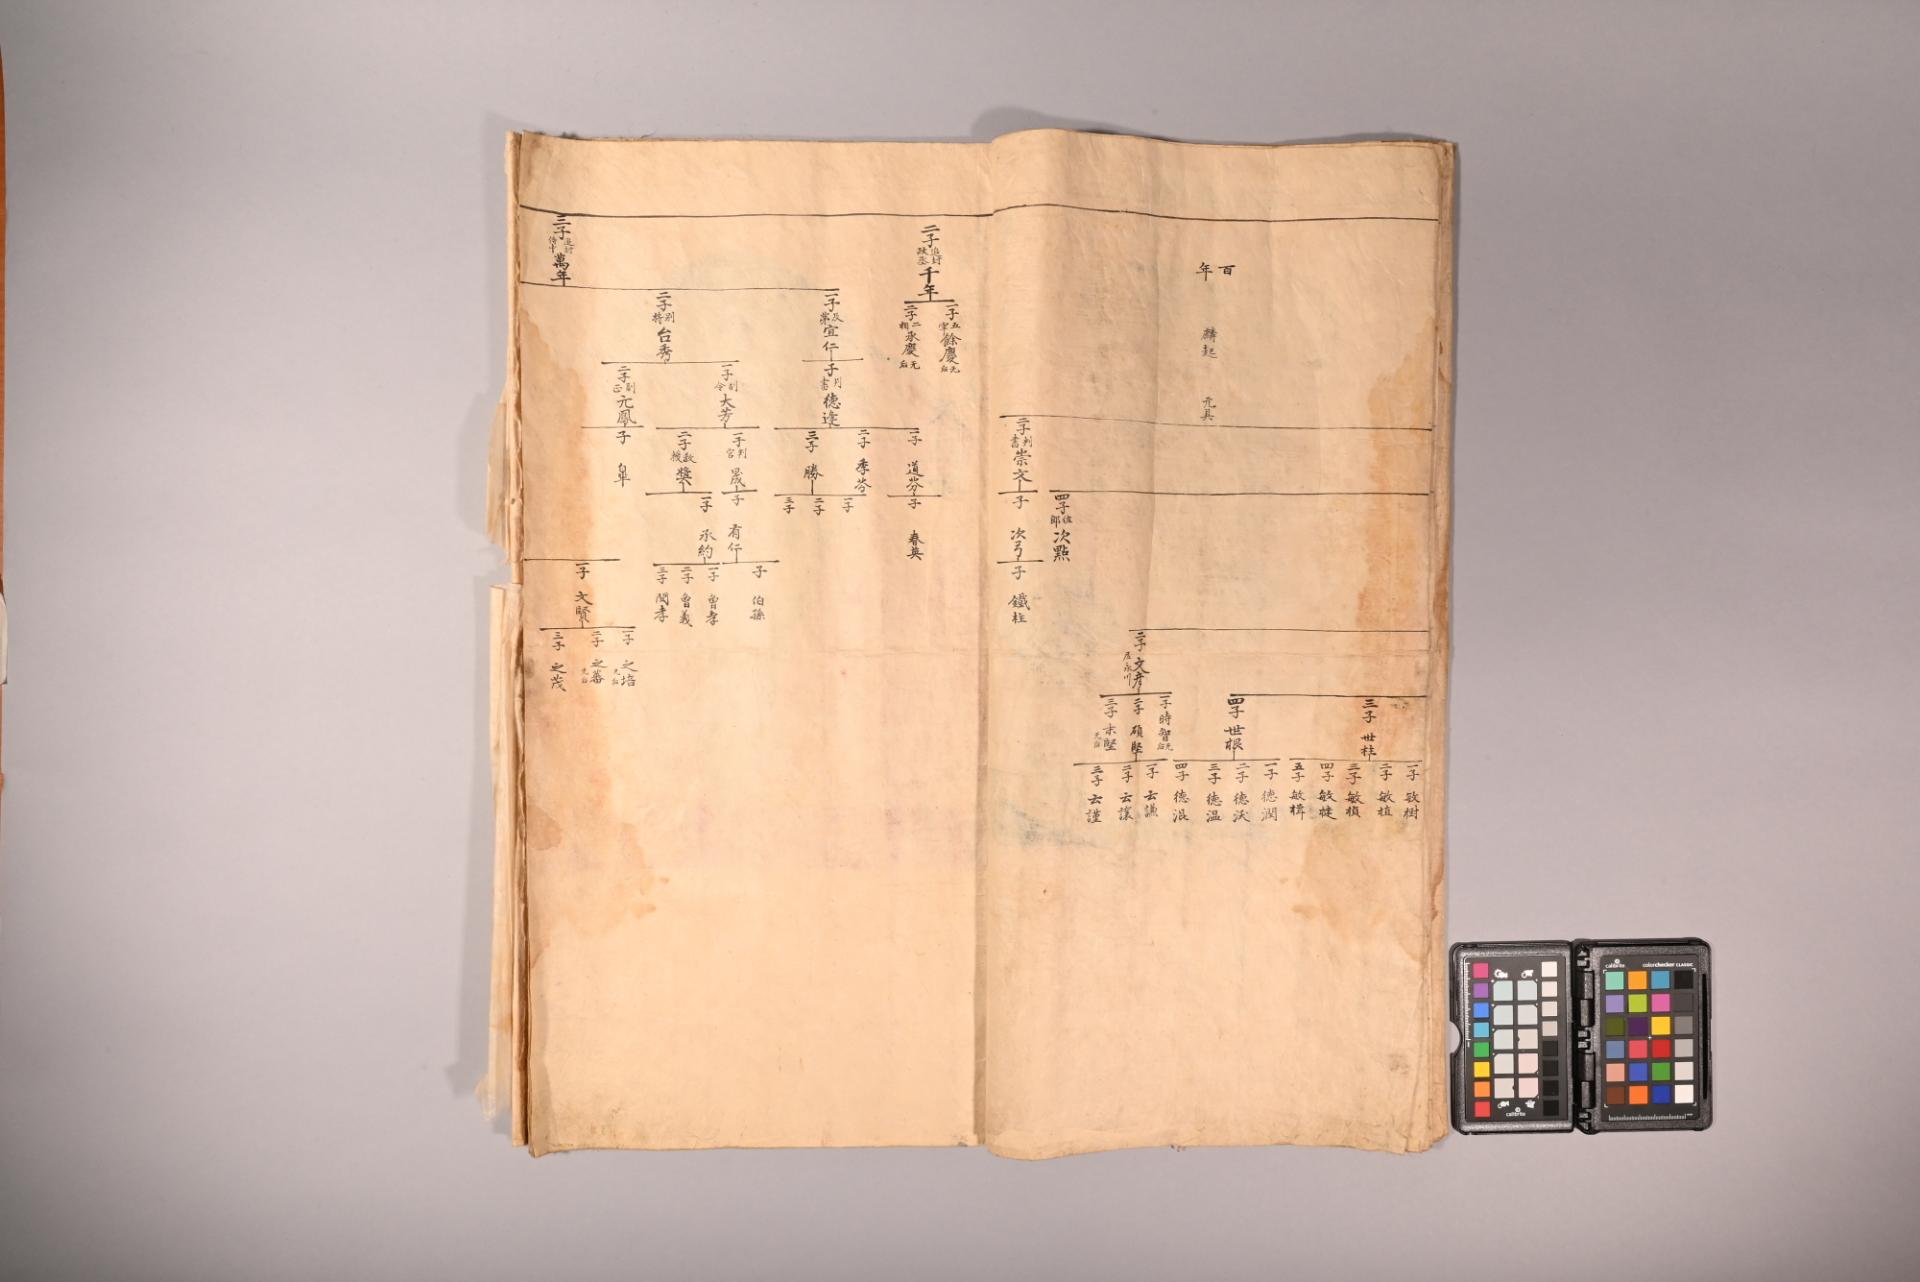 百年
麟起
元具
二子 判書 崇文
子 次弓
子 鐵柱
四子 佐郎 次點
二子 文彦 居永川
一子 時智 无后
二子 碩堅
三子 末堅 无后
三子 世柱
四子 世根
一子 敏樹
二子 敏植
三子 敏楨
四子 敏楗
五子 敏楫
一子 德潤
二子 德沃
三子 德温
四子 德浪
一子 云謙
二子 云讓
三子 云謹
二子 追封政丞 千年
一子 五宰 餘慶 无后
二子 二相 承慶 无后
三子 追封侍中 萬年
一子 及第 宜仁
子 判書 德逢
一子 道芬
二子 季芬
三子 勝
子 春英
一子
二子
三子
二子 別將 台秀
一子 副令 大芳
二子 副正 元鳳
一子 判官 晟
二子 教授 奬
子 皐
子 有仁
一子 承約
子 伯孫
一子 曾孝
二子 曾義
三子 閔孝
一子 文賢
一子 之培 无后
二子 之蕃 无后
三子 之茂
calibrite
colorchecker CLASSIC
calibrite